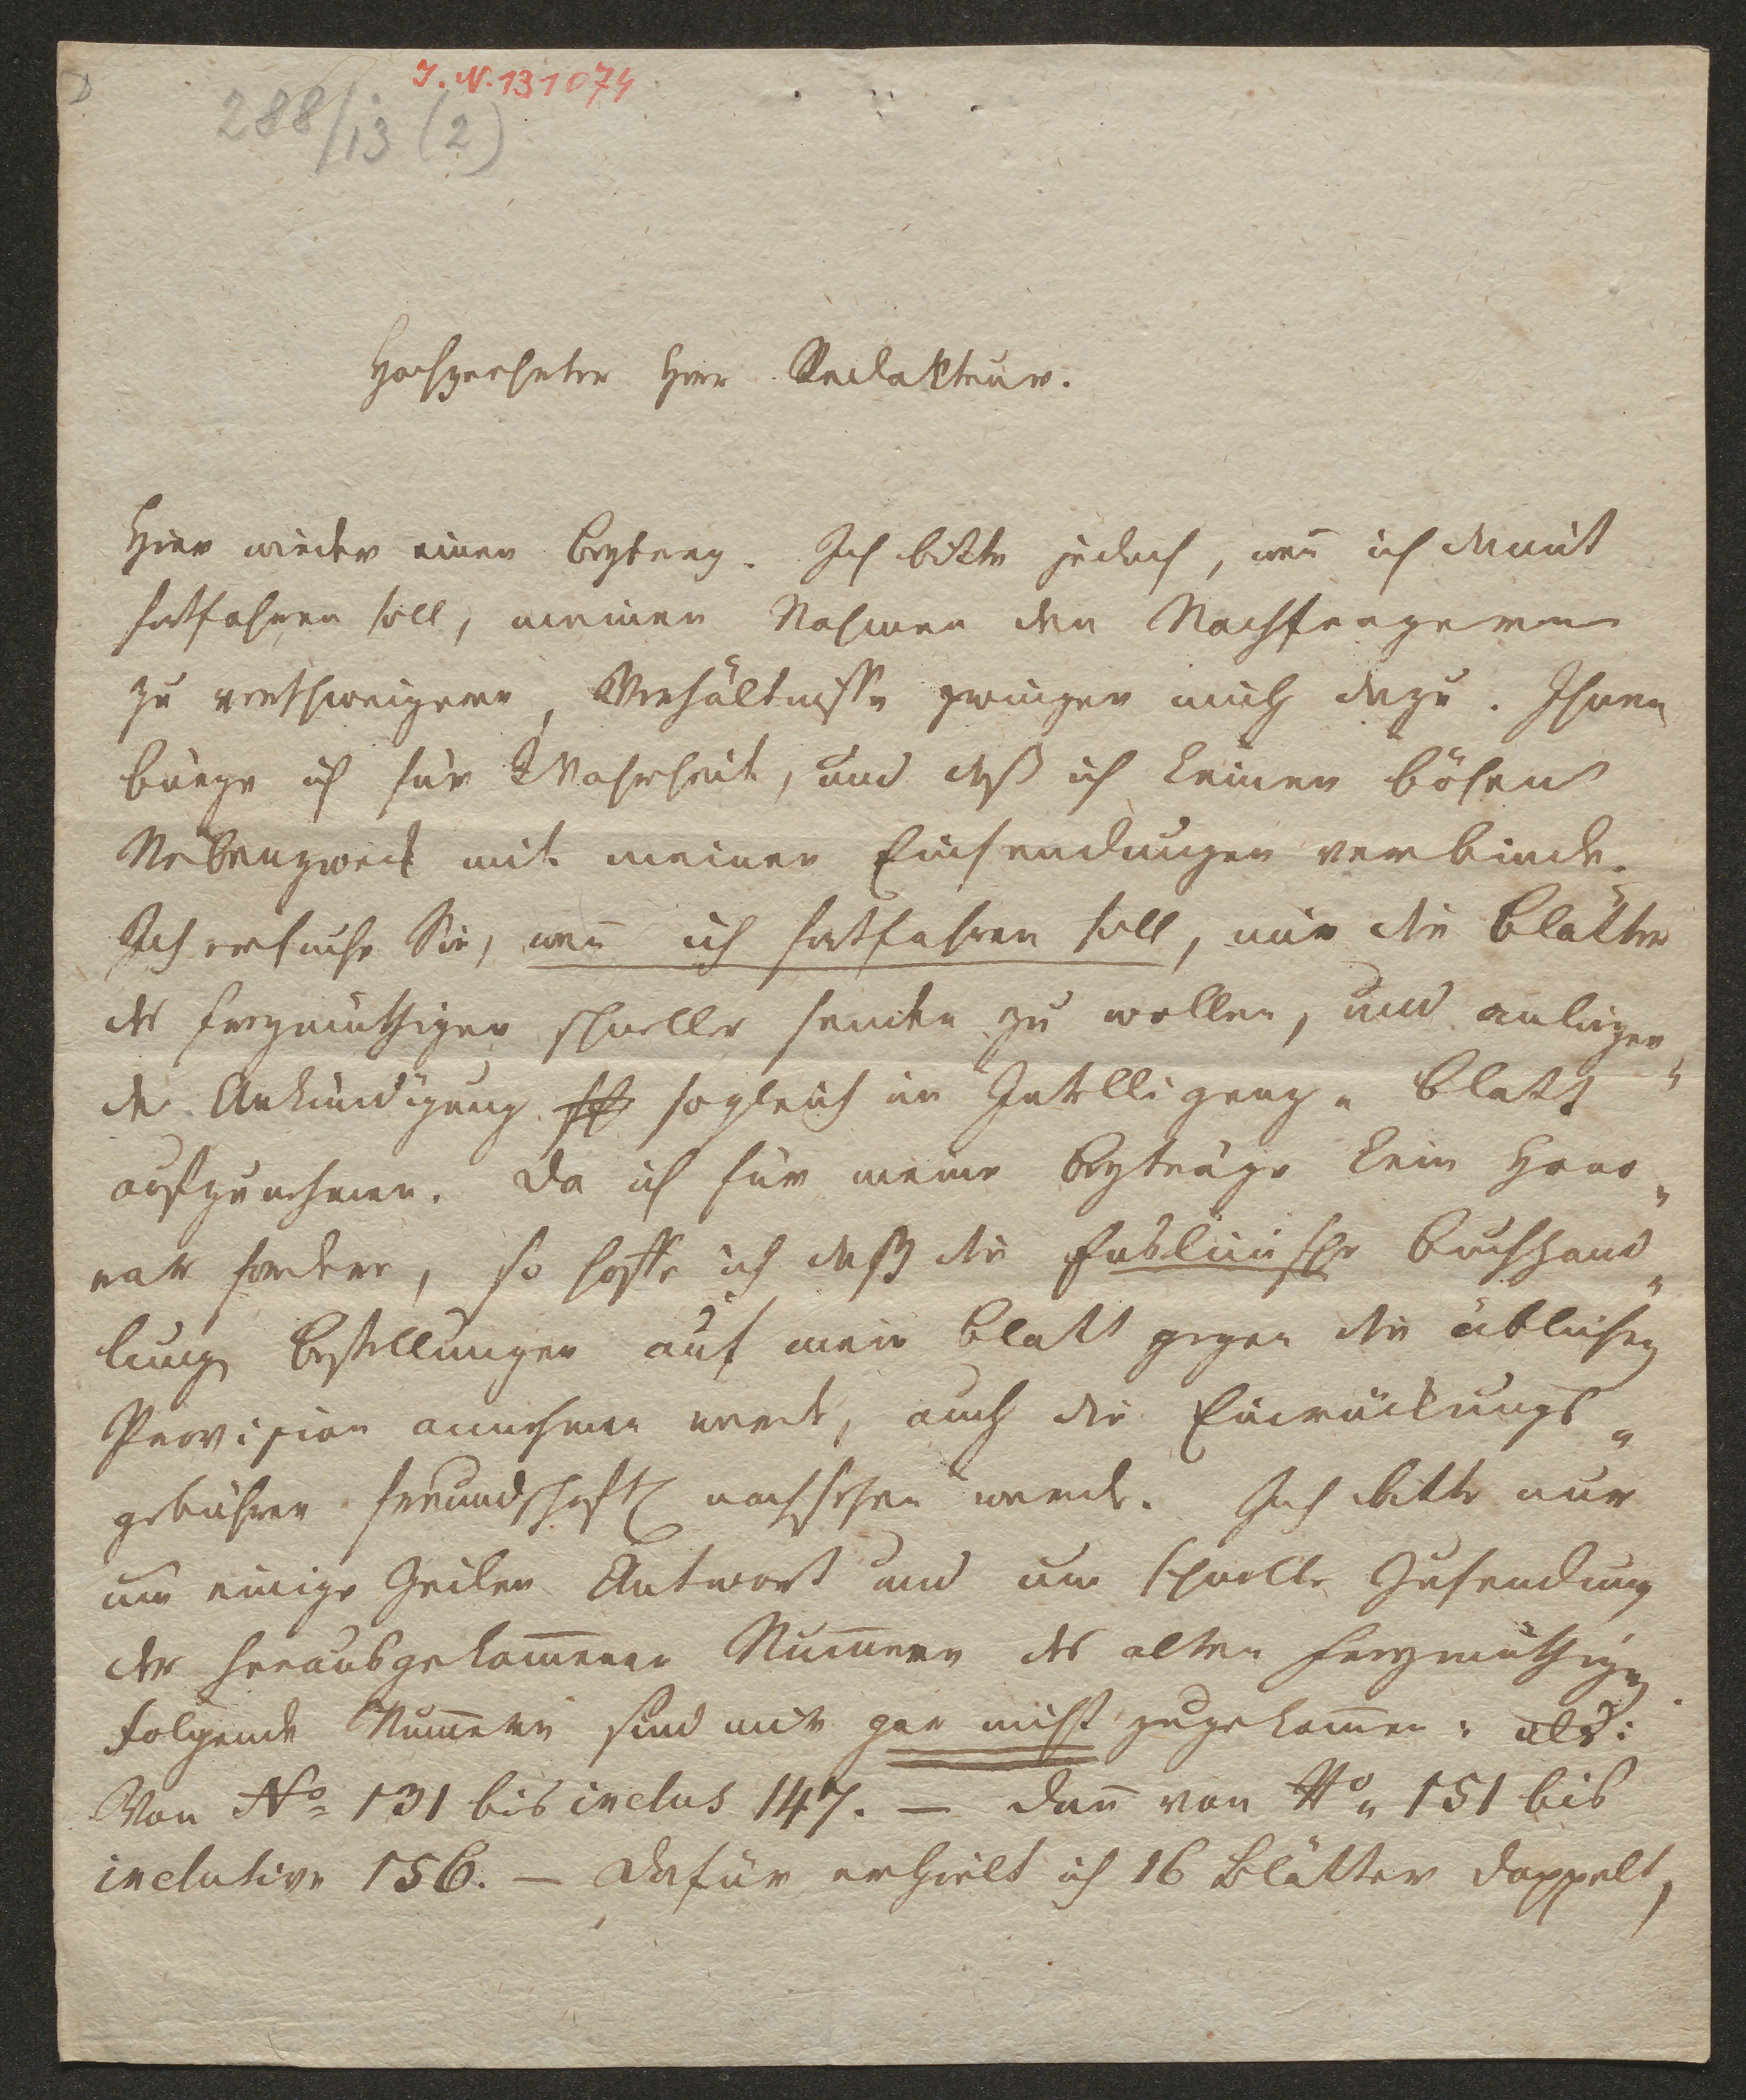 I. N. 131074
288/13 (2)
Hochgeehrter Herr Redakteur.
Hier wieder einen Beytrag. Ich bitte jedoch, weñ ich damit
fortfahren soll, meinen Nahmen den Nachfragern
zu verschweigen, Verhältnisse zwingen mich dazu. Ihnen
bürge ich für Wahrheit, und daß ich keinen bösen
Nebenzweck mit meinen Einsendungen verbinde.
Ich ersuche Sie, weñ ich fortfahren soll, mir die Blätter
des Freymüthigen schneller senden zu wollen, und anliegen„
de Ankündigung sogleich im Intelligenz„Blatt
aufzunehmen. Da ich für meine Beyträge kein Hono„
rar fordere, so hoffe ich daß die Frölich'sche Buchhand„
lung Bestellungen auf mein Blatt gegen die üblichen
Provision annehmen werde, auch die Einrückungs„
gebühren freundschaftl nachsehen werde. Ich bitte nur
um einige Zeilen Antwort und um schnelle Zusendung
der herausgekom̃enen Num̃ern des alten Freymüthigen.
Folgende Num̃ern sind mir gar nicht zugekom̃en: als:
Von No 131 bis inclus 147. — dañ von No 151 bis
inclusive 156. — Dafür erhielt ich 16 Blätter doppelt,